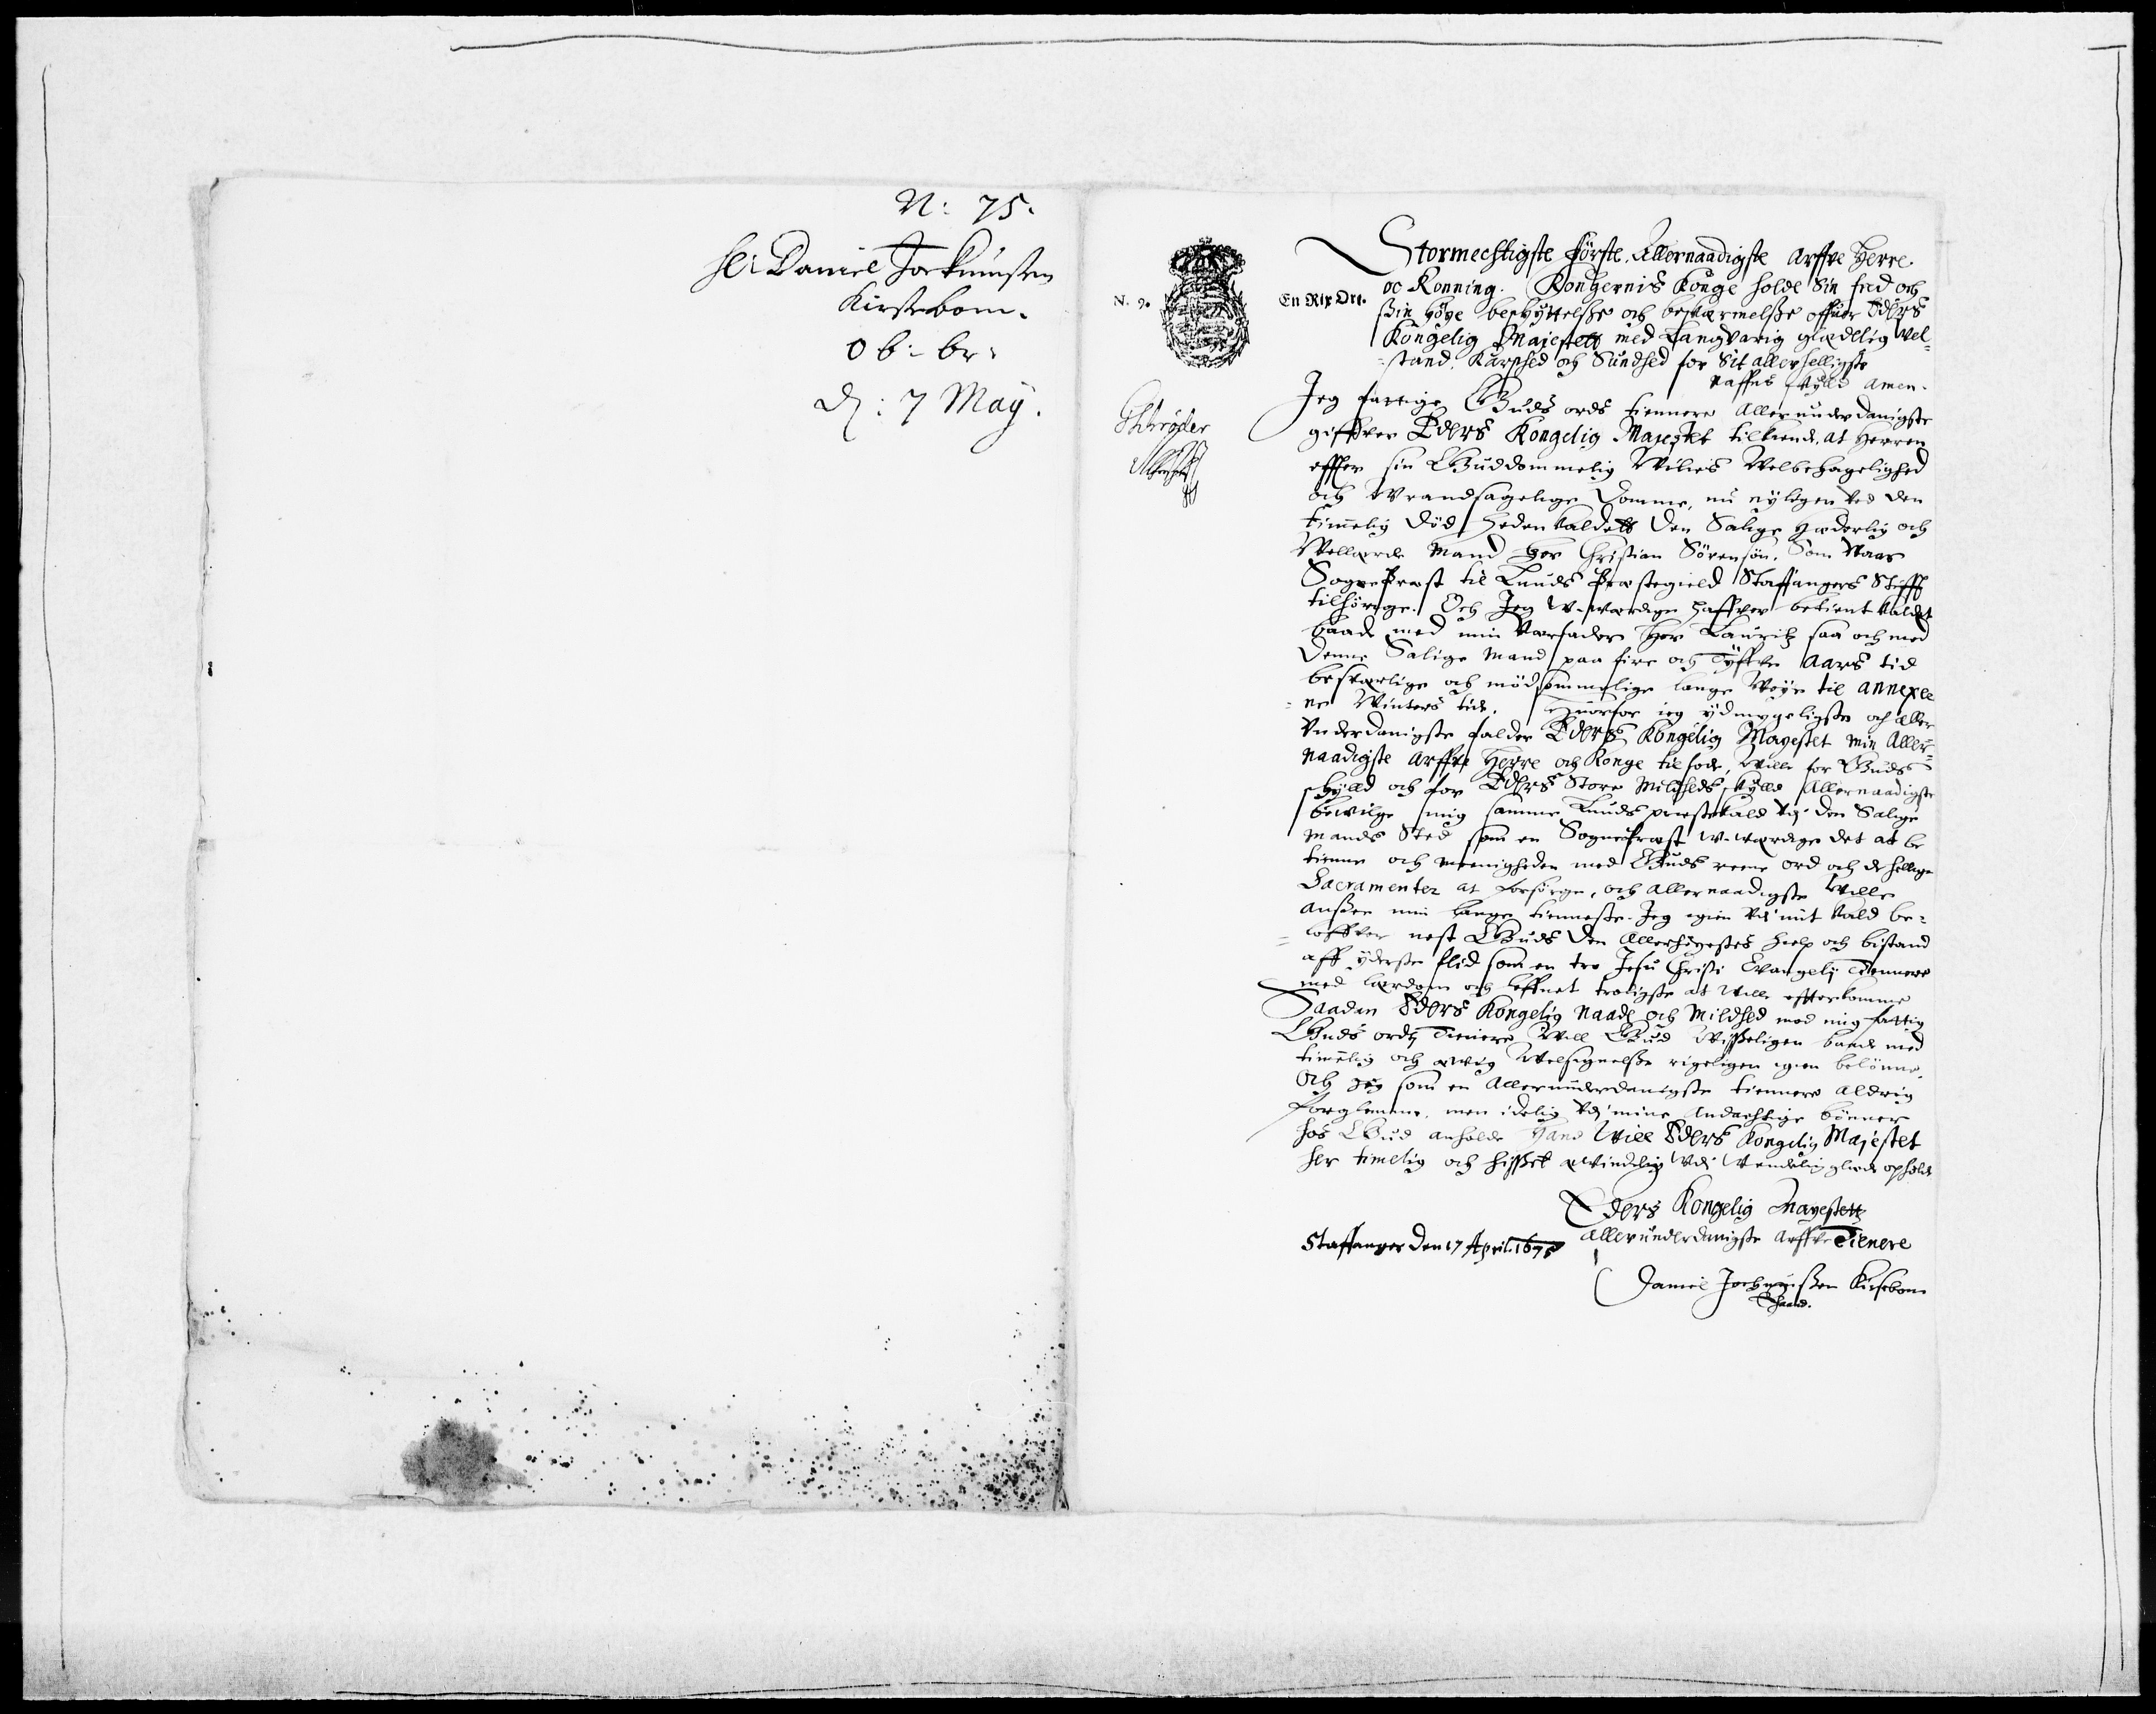 N: 75.
Hr: Daniel Jockumsen
Kirsebom.
Ob: br:
D: 7 May.
N. 9.
En Rix Ort.
Schrøder
Stormechtigste Første, Allernaadigste Arffve Herre
oc Konning. Kongernis Konge holde Sin fred och
sin høye beskyttelsse och beskermelsse offuer Eders
Kongelig Majestett med Langvarig glædelig Vel¬
stand, Karsched och Sundhed for Sit allerhelligste
naffns skyld Amen.
Jeg fattige Guds ords tiennere Allerunderdanigste
giffver Eders Kongelig Majestet tilkiende, at Herren
effter sin Guddommelig Vilies Velbehagelighed
och Wrandsagelige Domme, nu nyligen ved den
timelig Død hedenkaldett Den Salige Hæderlig och
Vellærde Mand Her Christian Sørensøn, Som Vaar
Sognepræst til Lunds Præstegield Staffangers Stifft
tilhørige. Och Jeg W-værdige haffver betient kaldet
baade med min Varfader Her Lauritz saa och med
denne Salige Mand paa fire och Tyffve Aars tid
besværlige och mødsommelige lange Veye til annexe
ne Winters tide. Huorfor jeg ydmygeligste och aller
Underdanigste falder Eders Kongelig Mayestet min Aller¬
naadigste Arffve Herre och Konge tilfode, Ville for Guds
skyld och for Eders Store Mildheds skyld Allernaadigste
bevilge mig samme Lunds præstekald Udi den Salige
Mands Sted som en Sognepræst W-værdige det at be
tienne och meenigheden med Guds reene ord och de hellige
Sacramenter at forsørge, och allernaadigste Ville
ansee min lange tienneste. Jeg igien Udi mit kald be¬
loffver nest Guds den Allerhøyestes hielp och bistand
aff yderste flid som en tro Jesu Christi Evangelij Tiennere
med lærdom och leffnet troligste at Ville effterkomme
Saadan Eders Kongelig Naade och Mildhed mod mig fattig
Guds ordz Tienere Will Gud Visseligen baade med
timelig och ævig Velsignelsse rigeligen igien belønne.
Och jeg som en Allerunderdanigste tiennere Aldrig
forglemme, men idelig Udi mine Andachtige bønner
hos Gud anholde Hand Will Eders Kongelig Majestet
her timelig och hisset ævindelig Udi Uendelig glæde opholde
Eders Kongelig Mayestetz
Allerunderdanigste Arffve Tienere
Staffanger den 17 April. 1675
Daniel Jochumssen Kirsebom
E haand.